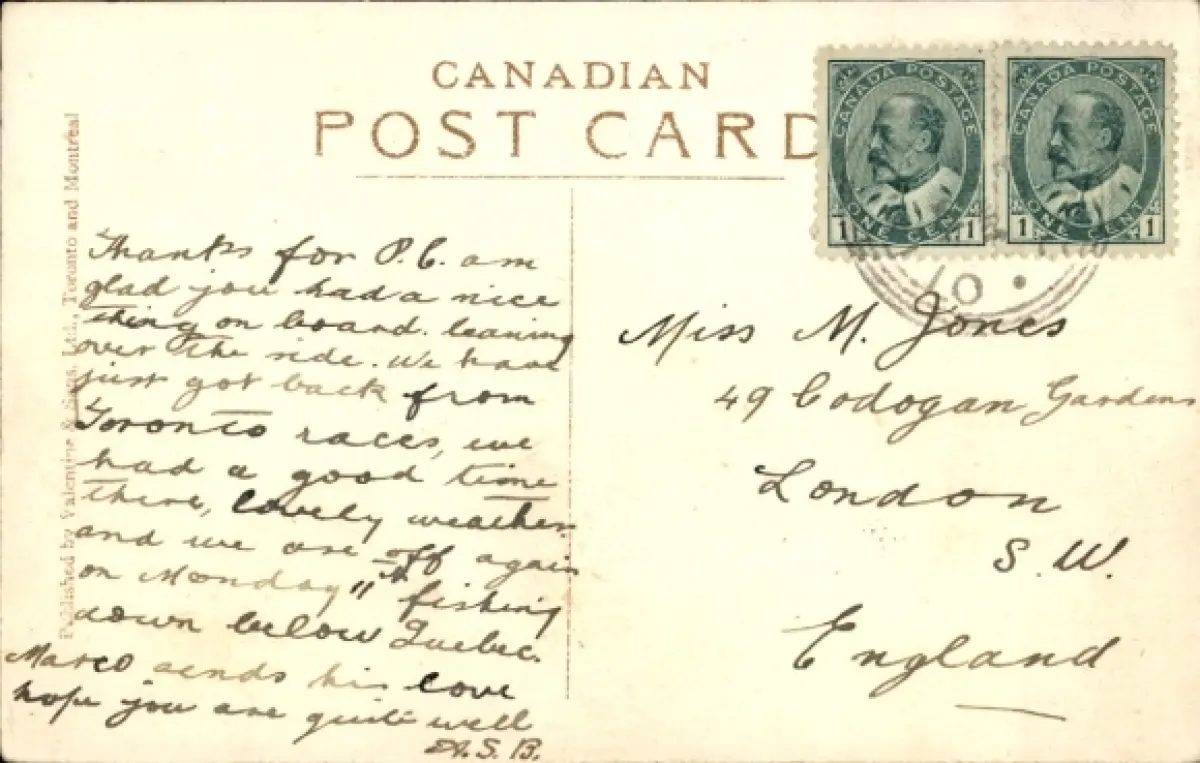 CANADIAN
POST CARD
CANADA POSTAGE
ONE CENT
1 1
CANADA POSTAGE
ONE CENT
1 1
10
Published by Valentine & Sons, Ltd., Toronto and Montreal
Thanks for P.C. am
glad you had a nice
thing on board. leaning
over the side. We have
just got back from
Toronto races, we
had a good time
there, lovely weather
and we are off again
on Monday 11th fishing
down below Quebec.
Marco sends his love
hope you are quite well
A.S.B.
Miss M. Jones
49 Codogan Gardens
London
S.W.
England